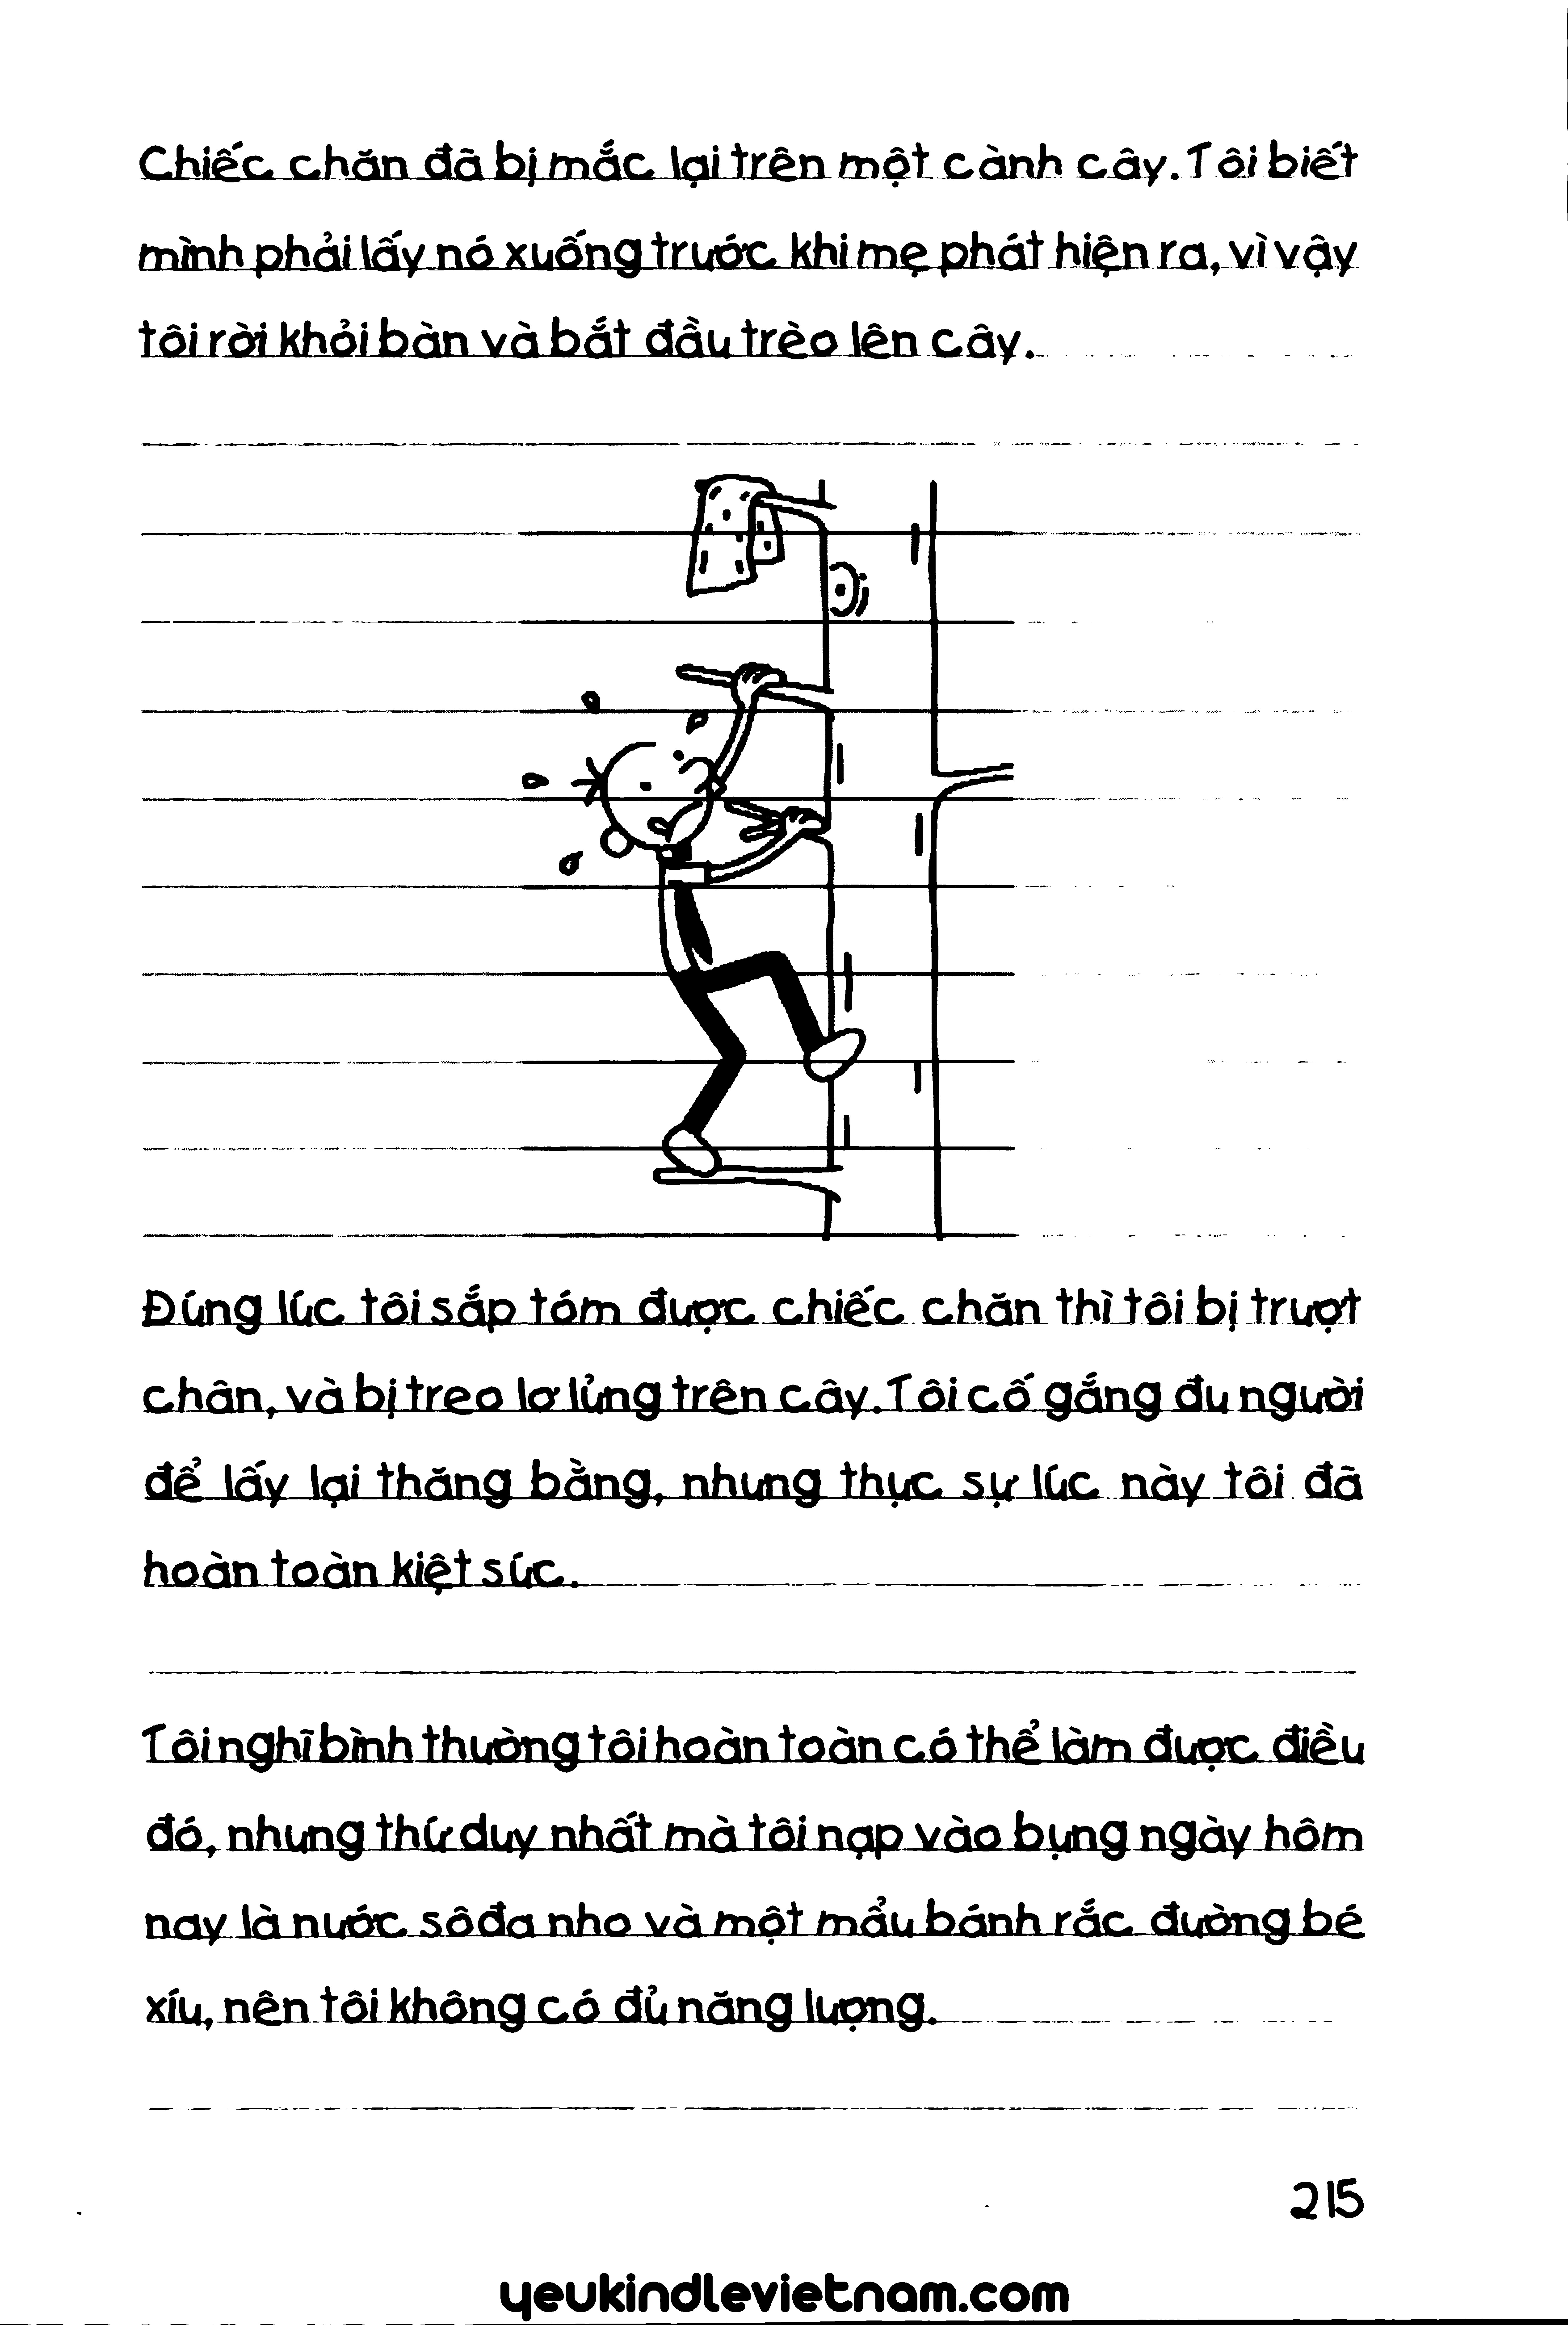 Chiếc chăn đã bị mắc lại trên một cành cây. Tôi biết
mình phải lấy nó xuống trước khi mẹ phát hiện ra, vì vậy
tôi rời khỏi bàn và bắt đầu trèo lên cây.
Đúng lúc tôi sắp tóm được chiếc chăn thì tôi bị trượt
chân, và bị treo lơ lửng trên cây. Tôi cố gắng đu người
để lấy lại thăng bằng, nhưng thực sự lúc này tôi đã
hoàn toàn kiệt sức.
Tôi nghĩ bình thường tôi hoàn toàn có thể làm được điều
đó, nhưng thứ duy nhất mà tôi nạp vào bụng ngày hôm
nay là nước sôđa nho và một mẩu bánh rắc đường bé
xíu, nên tôi không có đủ năng lượng.
215
yeukindlevietnam.com